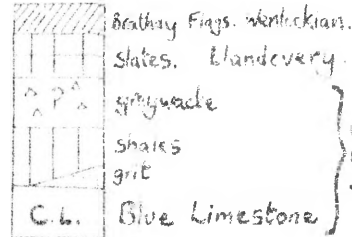 Brathay Flags. Wenlockian.
Slates. Llandovery.
P
greywacke
Shales
grit
C.L. Blue Limestone